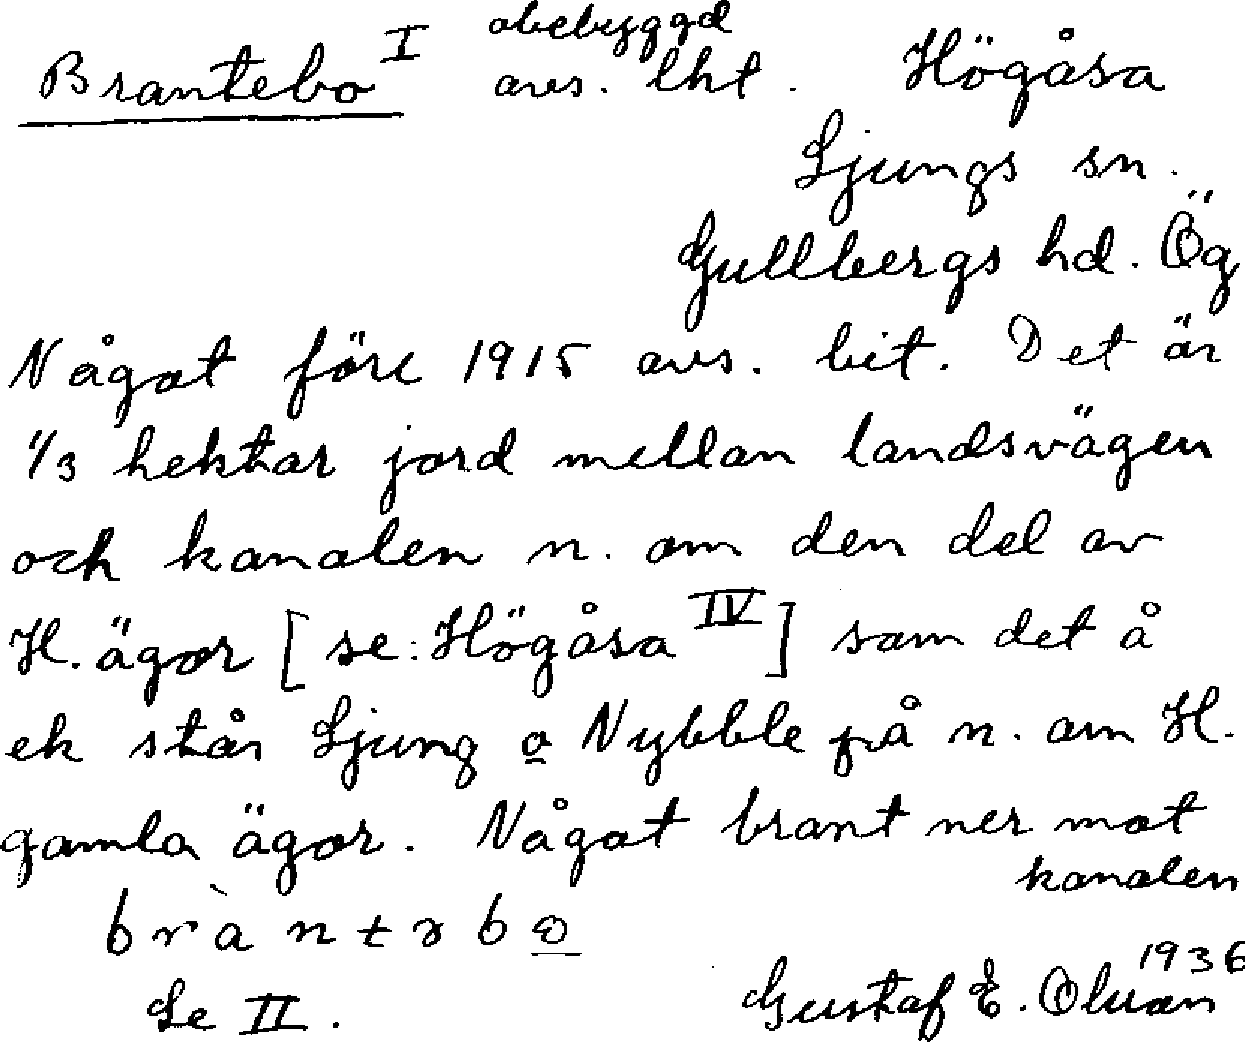 Brantebo I obebyggd Högåsa
avs. lht.
Ljungs sn.
Gullbergs hd. Ög
Något före 1915 avs. bit. Det är
1/3 hektar jord mellan landsvägen
och kanalen n. om den del av
H. ägor [se: Högåsa IV] som det å
ek står Ljung o Nybble på n. om H.
gamla ägor. Något brant ner mot
kanalen
Se II.
1936
Gustaf E.